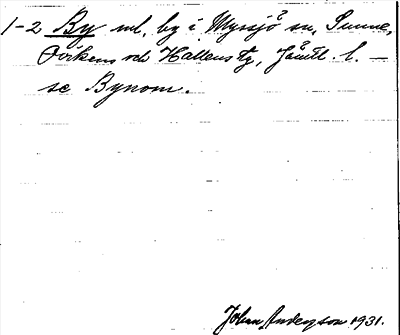 1-2 By ml. by i Myssjö sn, Sunne,
Ovikens och Hallens tg, Jämtl. l. —
se Bynom.
Johan Anderson 1931.